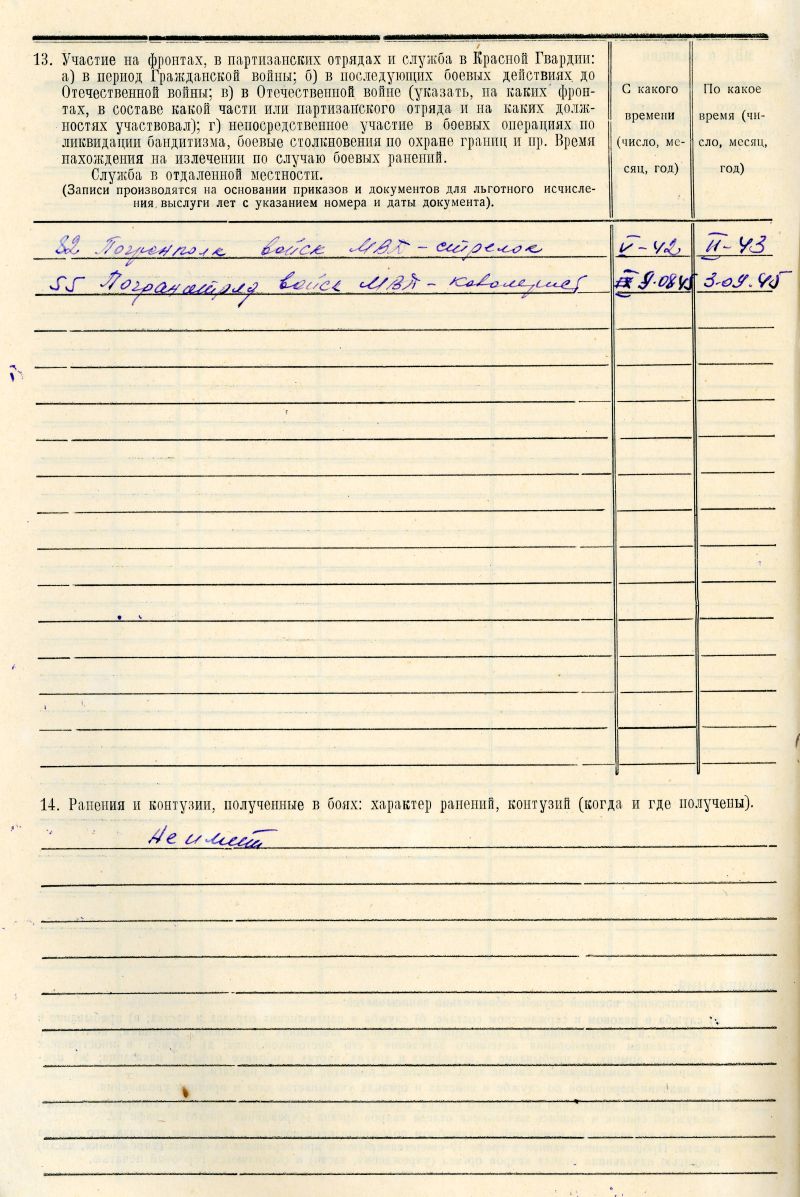 13. Участие на фронтах, в партизанских отрядах и служба в Красной Гвардии:
а) в период Гражданской войны; б) в последующих боевых действиях до
Отечественной войны; в) в Отечественной войне (указать, на каких фрон-
тах, в составе какой части или партизанского отряда и на каких долж-
ностях участвовал); г) непосредственное участие в боевых операциях по
ликвидации бандитизма, боевые столкновения по охране границ и пр. Время
нахождения на излечении по случаю боевых ранений.
Служба в отдаленной местности.
(Записи производятся на основании приказов и документов для льготного исчисле-
ния выслуги лет с указанием номера и даты документа).
С какого
времени
(число, ме-
сяц, год)
По какое
время (чи-
сло, месяц,
год)
82 Погренполк войск МВД - стрелок V-42 II-43
55 Погранотряд войск МВД - ковалерист 9.0845 3.09.45
14. Ранения и контузии, полученные в боях: характер ранений, контузий (когда и где получены).
Не имеет